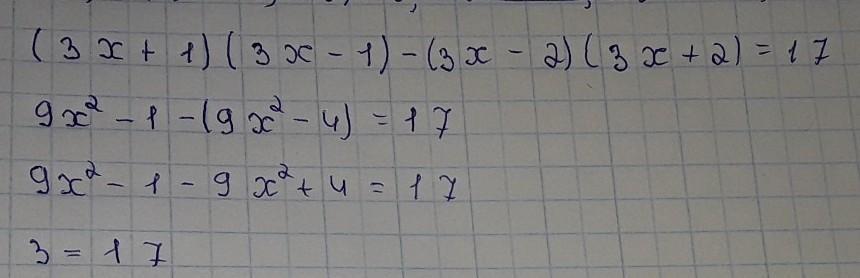 (3x+1)(3x-1)-(3x-2)(3x+2)=17
9x²-1-(9x²-4)=17
9x²-1-9x²+4=17
3=17